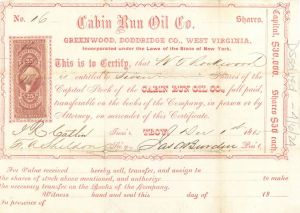 Cabin Run Oil Co.
No. 16 Shares.
GREENWOOD, DODDRIDGE CO., WEST VIRGINIA.
Incorporated under the Laws of the State of New York.
This is to Certify, that W. S. Lockwood
is entitled to Seven Shares of the
Capital Stock of the CABIN RUN OIL CO., full paid,
transferable on the books of the Company, in person or by
Attorney, on surrender of this Certificate.
TROY, Dec 1st 1865
Jas A Burden Pres't.
For Value received hereby sell, transfer, and assign to
the shares of stock above mentioned, and authorize
the necessary transfer on the Books of the Company.
Witness hand and seal this day of 18
In presence of
Capital, $50,000.
Shares